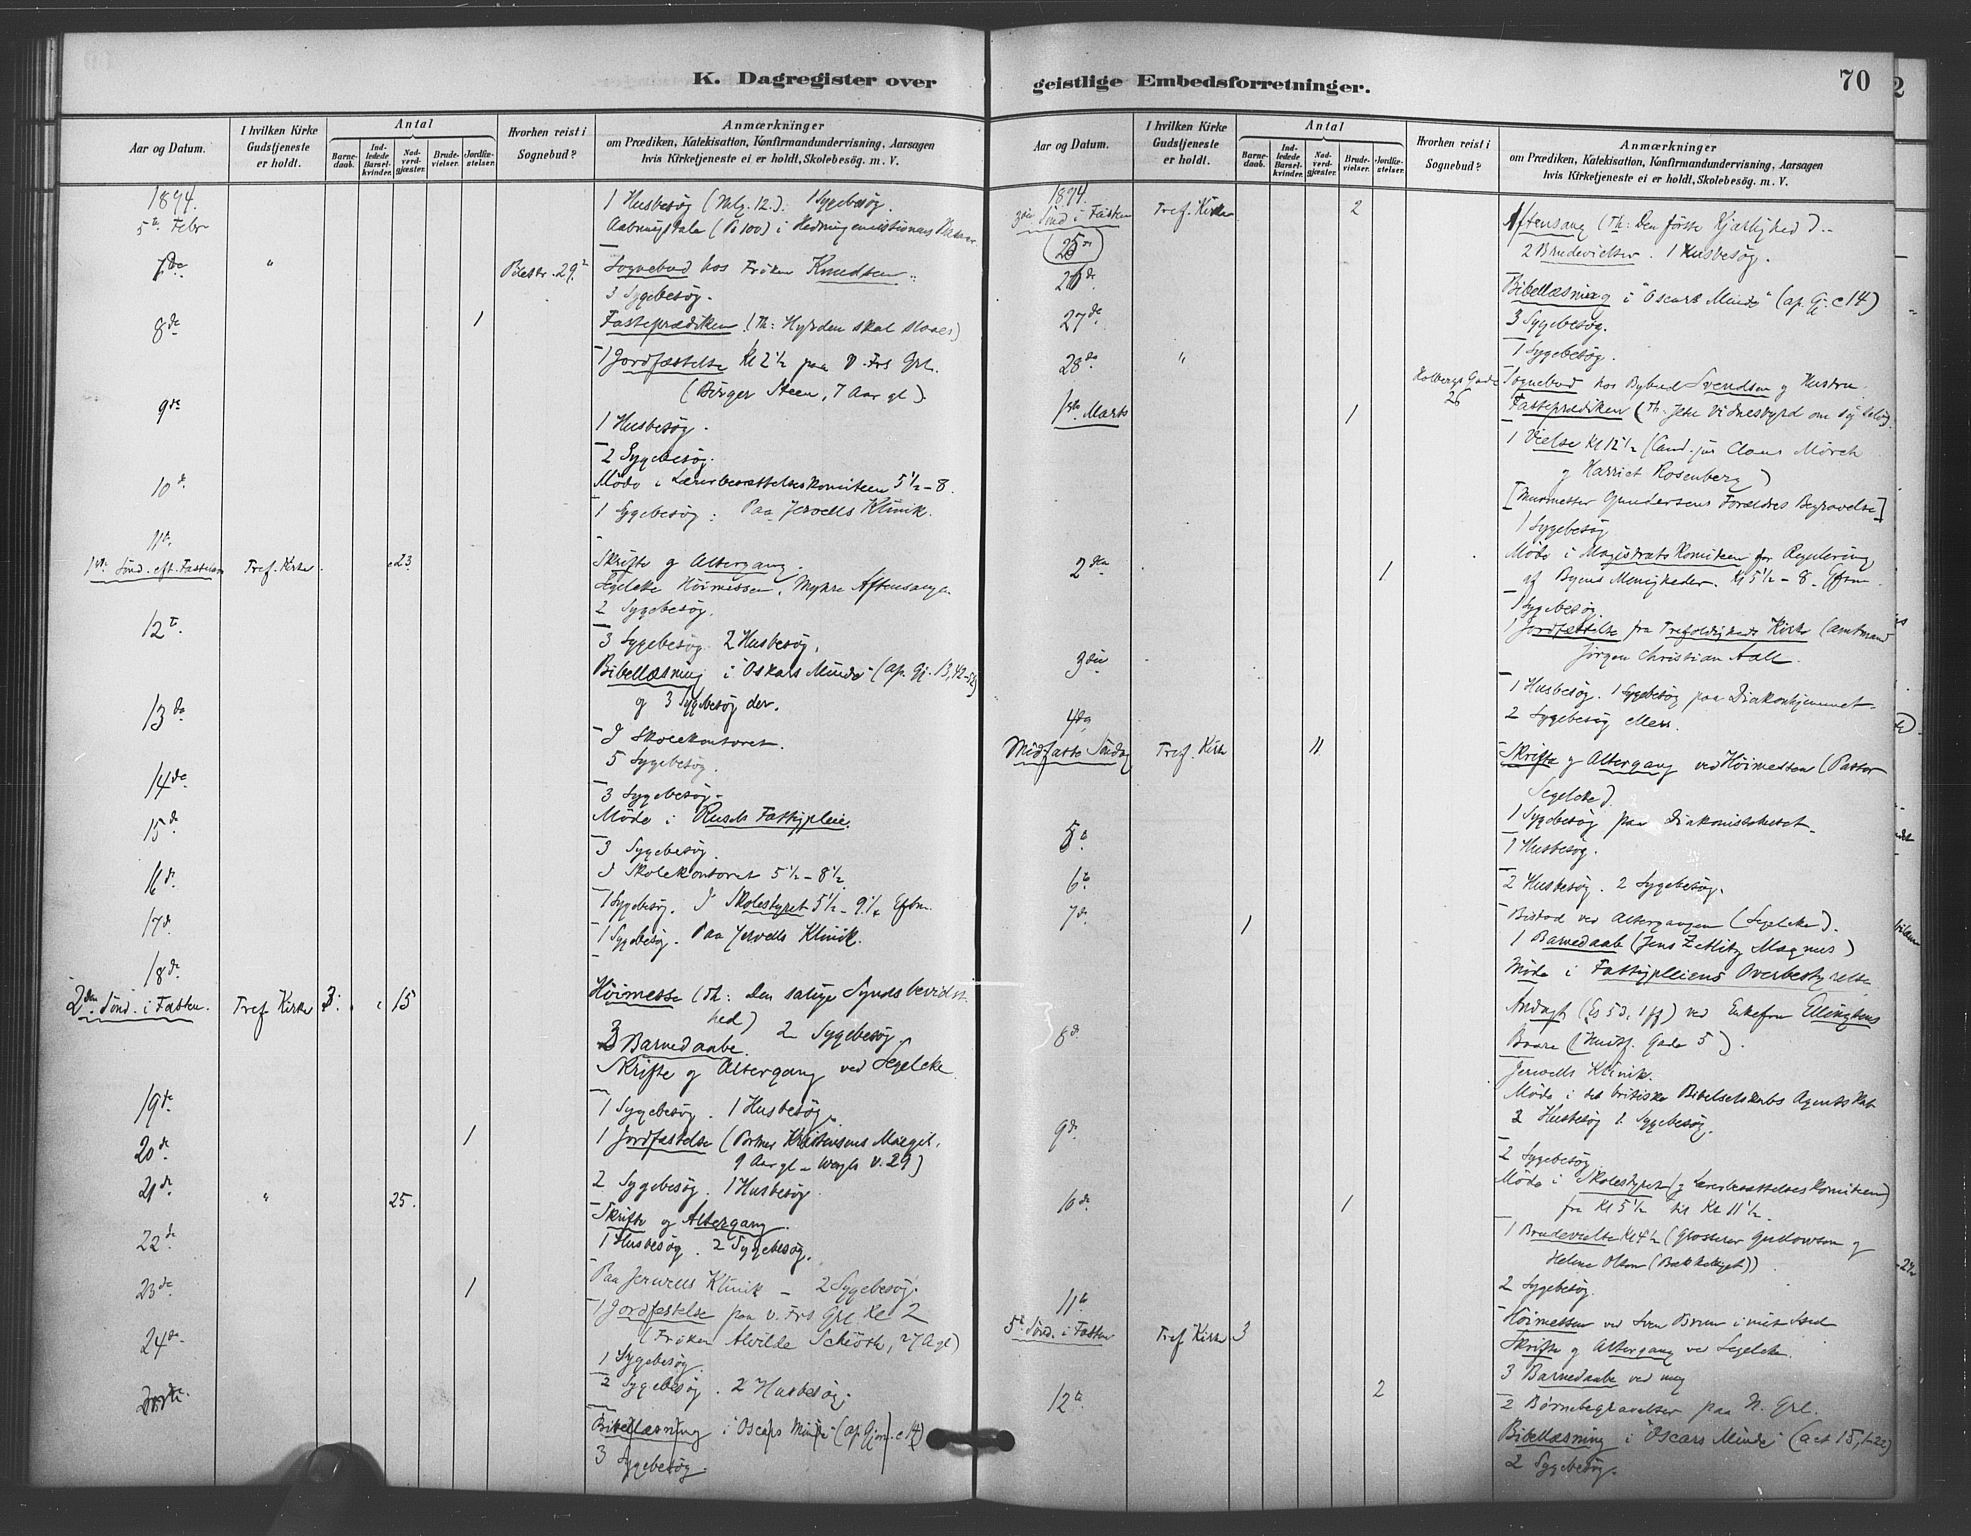 K. Dagregister over
Aar og Datum.
I hvilken Kirke Gudstjeneste er holdt.
Antal
Barnedaab.
Indledede Barselkvinder.
Nadverdgjæster.
Brudevielser.
Jordfæstelser.
Hvorhen reist i Sognebud?
Anmærkninger
om Prædiken, Katekisation, Konfirmandundervisning, Aarsagen
hvis Kirketjeneste ei er holdt, Skolebesög. m. V.
1894.
5te Febr
1 Husbesög 1 Sygebesög.
Aabningstale i Hedningemissionens
7de " 29 Sognebud hos Fröken Knudsen
3 Sygebesög.
8de 1 Fasteprædiken. (Th: Hyrden skal slaaes)
1 Jordfæstelse Kl 2 1/2 paa V. Frs Grl.
(Börger Steen, 7 Aar gl).
9de
1 Husbesög.
2 Sygebesög.
10de Möde i Lærerbesættelseskomiteen 5 1/2 - 8.
1 Sygebesög. Paa Jervells Klinik.
11te
1ste Sönd. eft. Fastelavn Tref. Kirke. 23 Skrifte og Altergang.
Segelcke Höimessen, Myhre Aftensangen
2 Sygebesög.
12te
3 Sygebesög. 2 Husbesög.
Bibellæsning i "Oskars Minde" (ap. Gj. 13,42-52)
og 3 Sygebesög der.
13de
I Skolekontoret.
5 Sygebesög.
14de
3 Sygebesög.
15de Möde i Fattigpleie.
3 Sygebesög.
16de I Skolekontoret 5 1/2 - 8 1/2
1 Sygebesög. I Skolestyret 5 1/2 - 9 1/2 Eftm.
17de 1 Sygebesög. Paa Jervells Klinik.
18de
2den Sönd. i Fasten. Tref Kirke 3 15 Höimesse (Th: Den salige Syndsbevidsthed) 2 Sygebesög
3 Barnedaabe.
Skrifte og Altergang ved Segelcke
19de
1 Sygebesög. 1 Husbesög.
20de 1 1 Jordfæstelse (Portner Kristensens Margit,
9 Aar gl
2 Sygebesög. 1 Husbesög
21de " 25.
Skrifte og Altergang.
22de 1 Husbesög. 2 Sygebesög.
23de 1 Paa Jervells Klinik - 2 Sygebesög.
1 Jordfæstelse paa v. Frs Grl Kl 2
(Fröken Alvilde Schiöth, 27 A gl)
24de
1 Sygebesög.
2 Sygebesög. 2 Husbesög.
Bibellæsning i "Oscars Minde" (ap Gjern. c 14)
3 Sygebesög.
geistlige Embedsforretninger.
70
Aar og Datum.
I hvilken Kirke Gudstjeneste er holdt.
Antal
Barnedaab.
Indledede Barselkvinder.
Nadverdgjæster.
Brudevielser.
Jordfæstelser.
Hvorhen reist i Sognebud?
Anmærkninger
om Prædiken, Katekisation, Konfirmandundervisning, Aarsagen
hvis Kirketjeneste ei er holdt, Skolebesög. m. V.
1894.
3die Sönd i Fasten Tref. Kirke 2 Aftensang (Th: Den förste Kjærlighed).
25de 2 Brudevielser. 1 Husbesög.
26de Bibellæsning i "Oscars Minde" (ap. Gj. c 14)
3 Sygebesög.
27de
1 Sygebesög.
28de " Holbergs Gade 26 Sognebud hos Bybud Svendsen og Hustru.
1ste Marts 1 Fasteprædiken (Th. Jesu Vidnesbyrd om sig selv).
1 Vielse Kl 12 1/2 (Cand. jur Claus Mörch
og Harriet Rosenberg)
[Murmester Gundersens Forældres Begravelse]
1 Sygebesög
2den 1 Möde i Magistratskomiteen for Regulering
af Byens Menigheder. Kl 5 1/2 - 8 Eftm
1 Sygebesög.
1 Jordfæstelse fra Trefoldigheds Kirke (amtmand
Jörgen Christian Aall.
3die
1 Husbesög. 1 Sygebesög paa Diakonhjemmet.
2 Sygebesög ellers.
4de
Midfaste Söndag Tref. Kirke 11 Skrifte og Altergang ved Höimessen (Pastor
Segelcke).
1 Sygebesög paa Diakonissehuset.
5te
1 Husbesög.
6te 2 Husbesög. 2 Sygebesög.
7de 1 Bistod ved Altergangen (Segelcke).
1 Barnedaab (Jens Zetlitz Magnus)
Möde i Fattigpleiens Overbestyrelse
8de Andagt ved Enkefru Ellingsens
Baare
Jervells Klinik.
Möde i det britiske Bibelselskabs Agentskab
2 Husbesög 2 Sygebesög.
9de
2 Sygebesög
Möde i Skolestyret (og Lærerbesættelseskomiteen)
fra Kl 5 1/2 til Kl 11 1/2.
10de 1 1 Brudevielse
Helene Olsen
2 Sygebesög.
11te
5te Sönd. i Fasten Tref Kirke 3 Höimessen ved Sven Brun i mit Sted
Skrifte og Altergang ved Segelcke.
3 Barnedaabe ved mig
12te 2 2 Börnebegravelser paa N. Grl.
Bibellæsning i "Oscars Minde" (act 15,1-22)
2 Sygebesög.